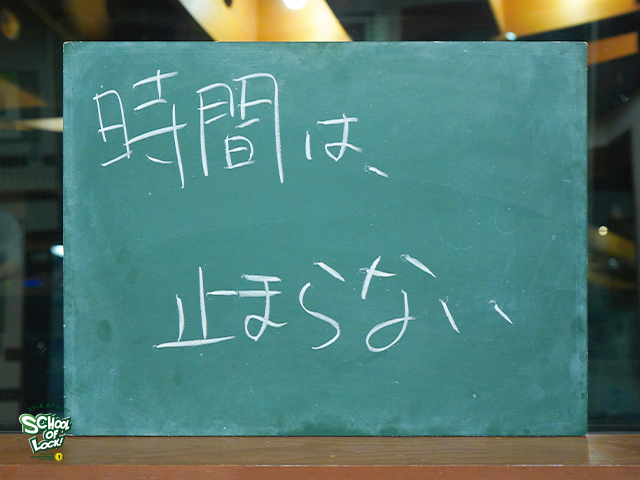 時間は、
止まらない
SCHOOL
OF
LOCK!